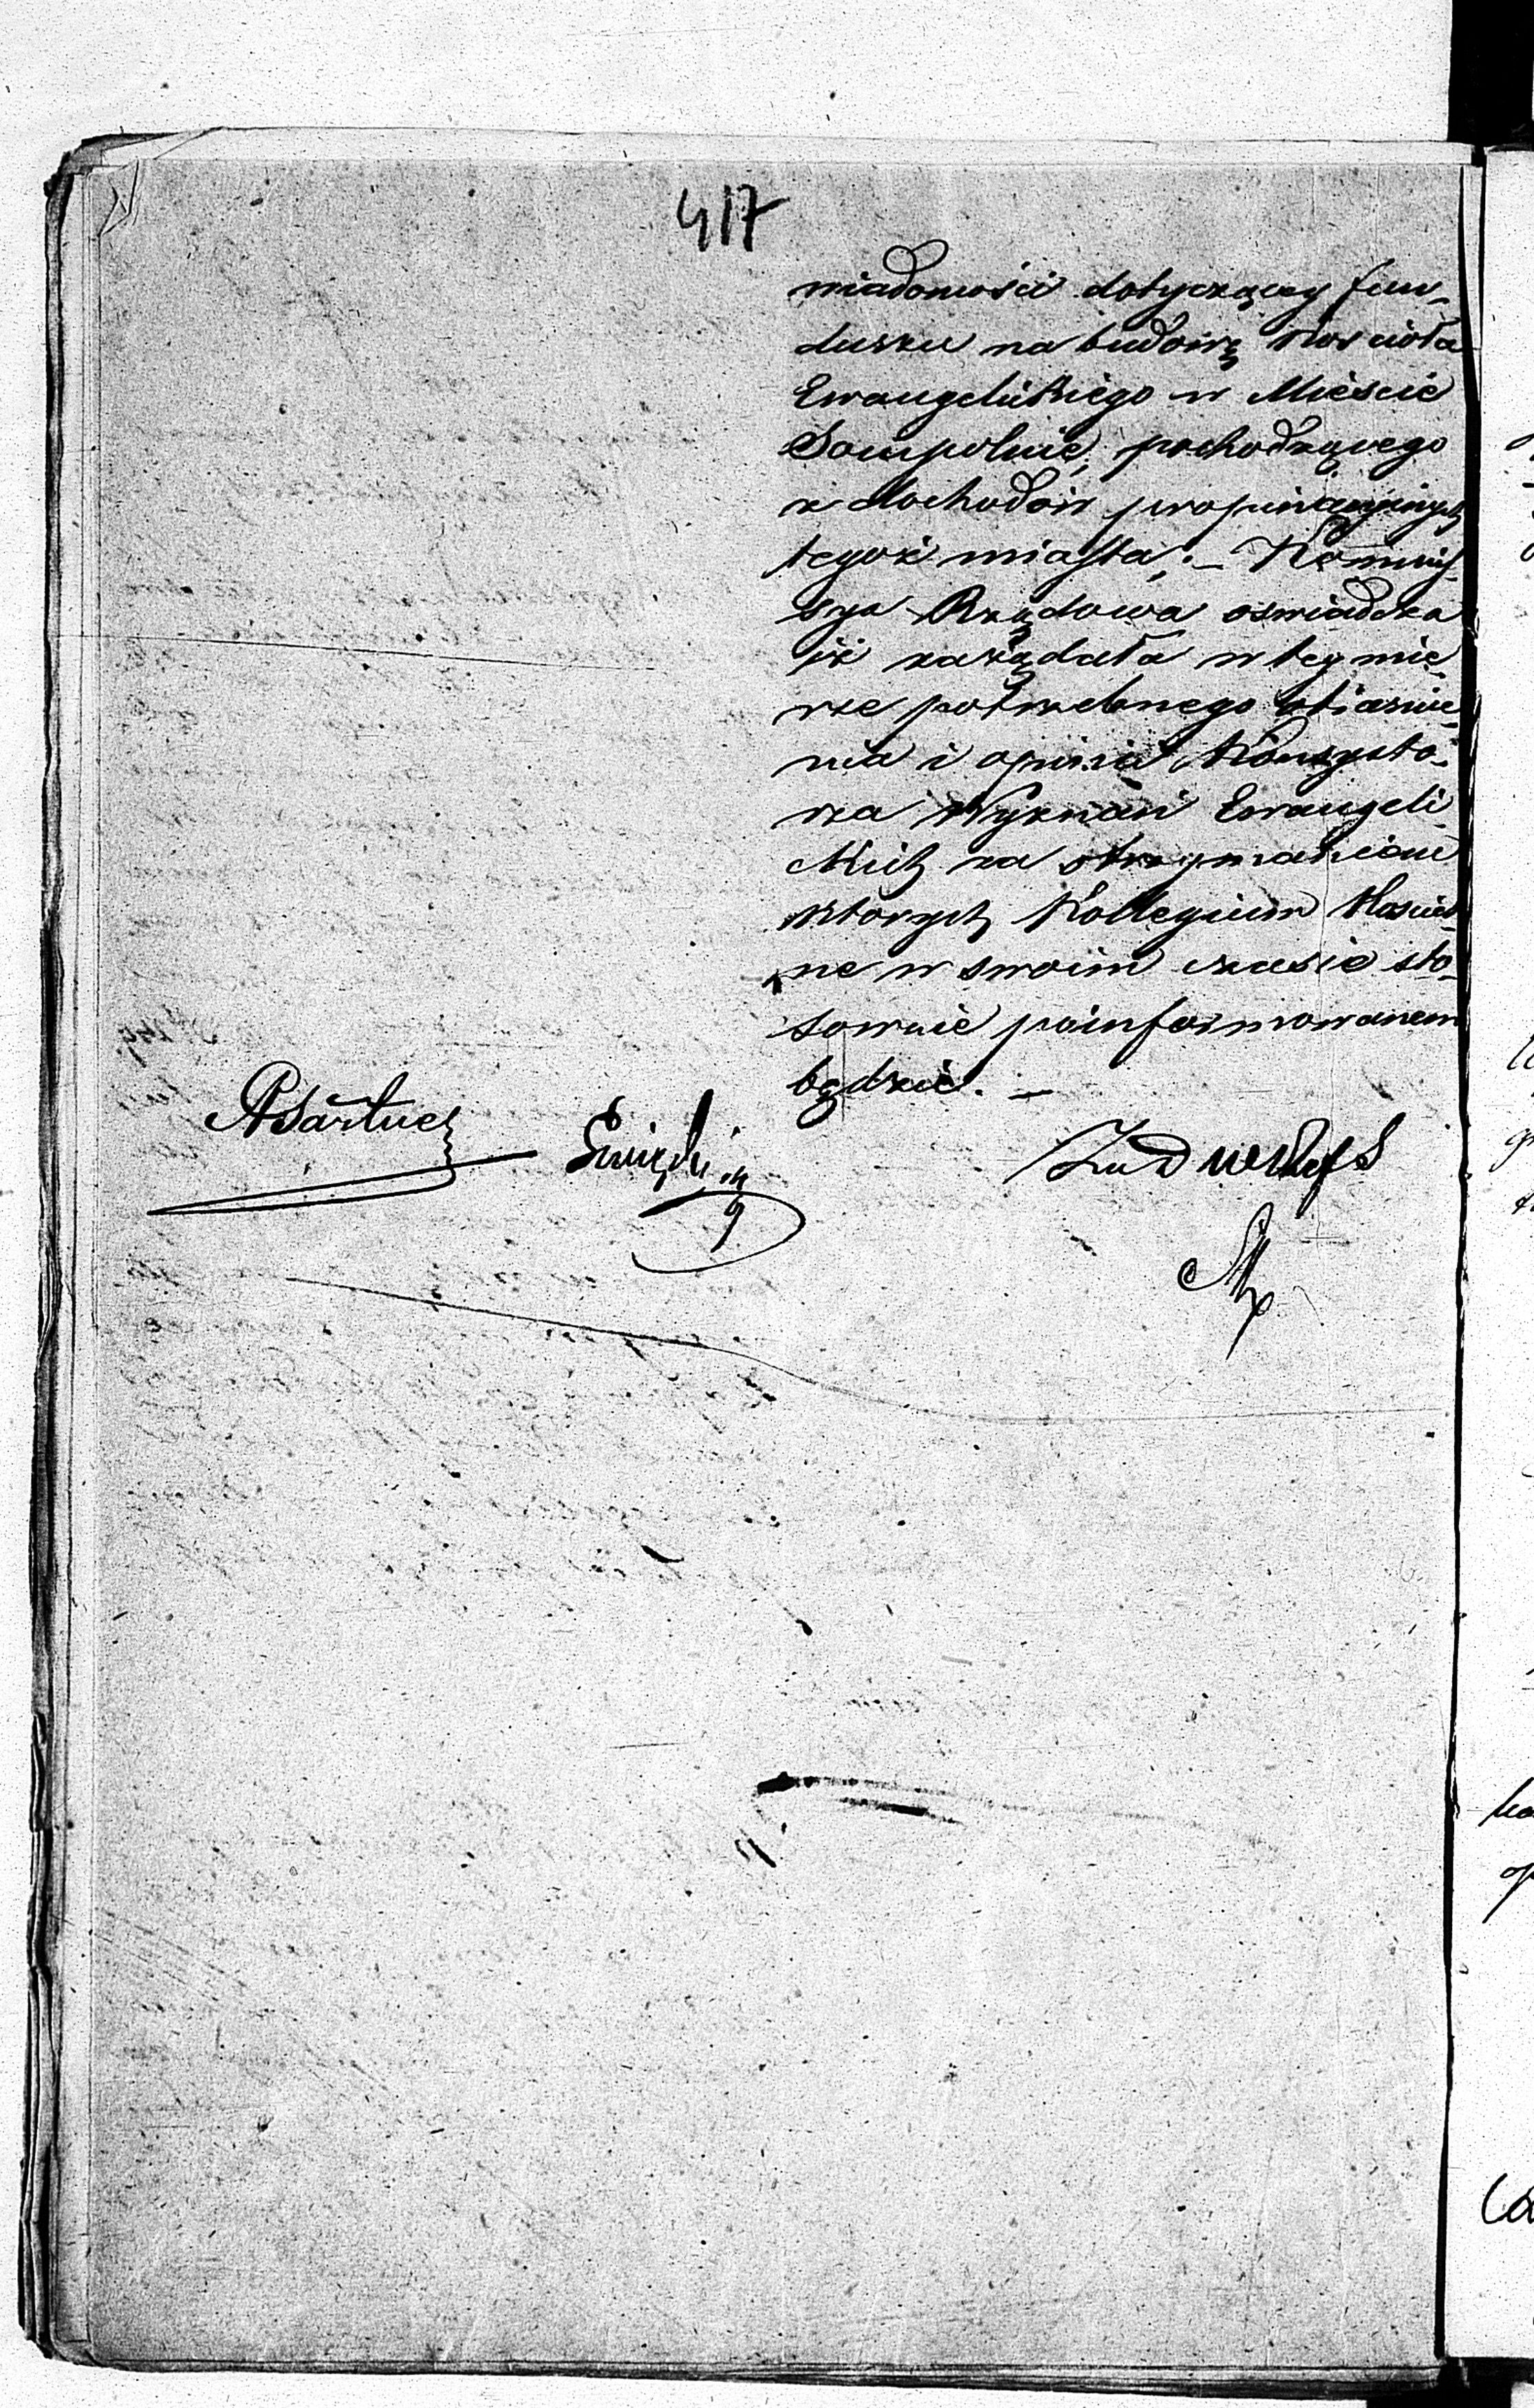 417
wiadomości dotyczącey fun-
duszu na budowę Kościoła
Ewangelickiego w Mieście
Sompolnie, pochodzącego
z dochodów propinacyinych
tegoż miasta, – Kommis-
sya Rządowa oswiadcza
iż zażądała w tey mie-
rze potrzebnego obiasnie-
nia i opinii Konsysto-
rza Wyznań Ewangeli-
ckich za otrzymaniem
ktorych Kollegium Kosciel-
ne w swoim czasie sto-
sownie poinformowanem
będzie. –